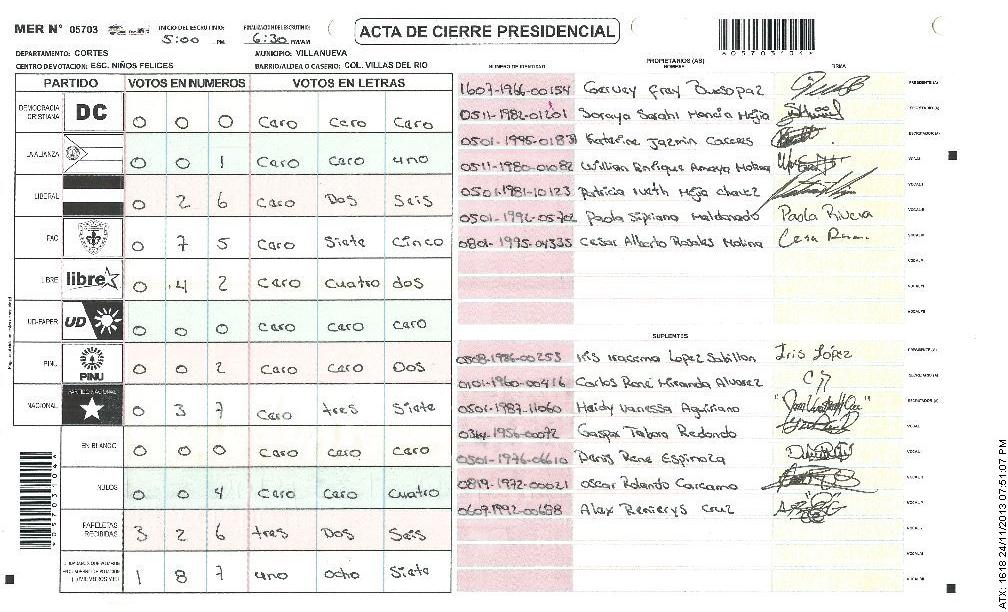 MER N° 05703 INICIO DEL ESCRUTINIO: 5:00 PM FINALIZACION DEL ESCRUTINIO: 6:30 PM/AM
ACTA DE CIERRE PRESIDENCIAL
*05703104*
DEPARTAMENTO: CORTES MUNICIPIO: VILLANUEVA
CENTRO DE VOTACION: ESC. NIÑOS FELICES BARRIO/ALDEA O CASERIO: COL. VILLAS DEL RIO
PARTIDO VOTOS EN NUMEROS VOTOS EN LETRAS
DEMOCRACIA CRISTIANA DC 0 0 0 Caro Cero Caro
LA ALIANZA 0 0 1 Caro Caro uno
LIBERAL 0 2 6 Caro Dos Seis
PAC 0 7 5 Caro Siete Cinco
LIBRE libre 0 4 2 Caro Cuatro dos
UD-FAPER UD 0 0 0 Caro Caro Caro
PINU PINU 0 0 2 Caro Caro Dos
NACIONAL PARTIDO NACIONAL 0 3 7 Caro tres Siete
EN BLANCO 0 0 0 Caro Caro Caro
NULOS 0 0 4 Caro Caro Cuatro
PAPELETAS RECIBIDAS 3 2 6 tres Dos Seis
1 8 7 uno ocho Siete
PROPIETARIOS (AS)
NUMERO DE IDENTIDAD NOMBRE FIRMA
1607-1966-00154 PRESIDENTE (A)
0511-1982-01201 Soraya Sarahi Mancia Mejia SECRETARIO (A)
Katerine Jazmin Caceres ESCRUTADOR (A)
0511-1980-01082 Willian Enrique Amaya Molina VOCAL I
0501-1981-10123 Patricia Iveth Mejia Chavez VOCAL II
Paola Sipriano Maldonado Paola Rivera VOCAL III
0801-1995-04335 Cesar Alberto Rosales Molina
SUPLENTES
0508-1986-00253 Iris Iracema Lopez Sabillon Iris López PRESIDENTE (A)
0101-1960-00416 Carlos René Miranda Alvarez SECRETARIO (A)
0501-1987-11060 Heidy Vanessa Aguiriano ESCRUTADOR (A)
Gaspar Tabora Redondo VOCAL I
0501-1976-06610 Denis Rene Espinoza VOCAL II
0819-1972-00021 Oscar Rolando Carcamo
Alex Renierys Cruz
*05703104*
ATX: 1618 24/11/2013 07:51:07 PM